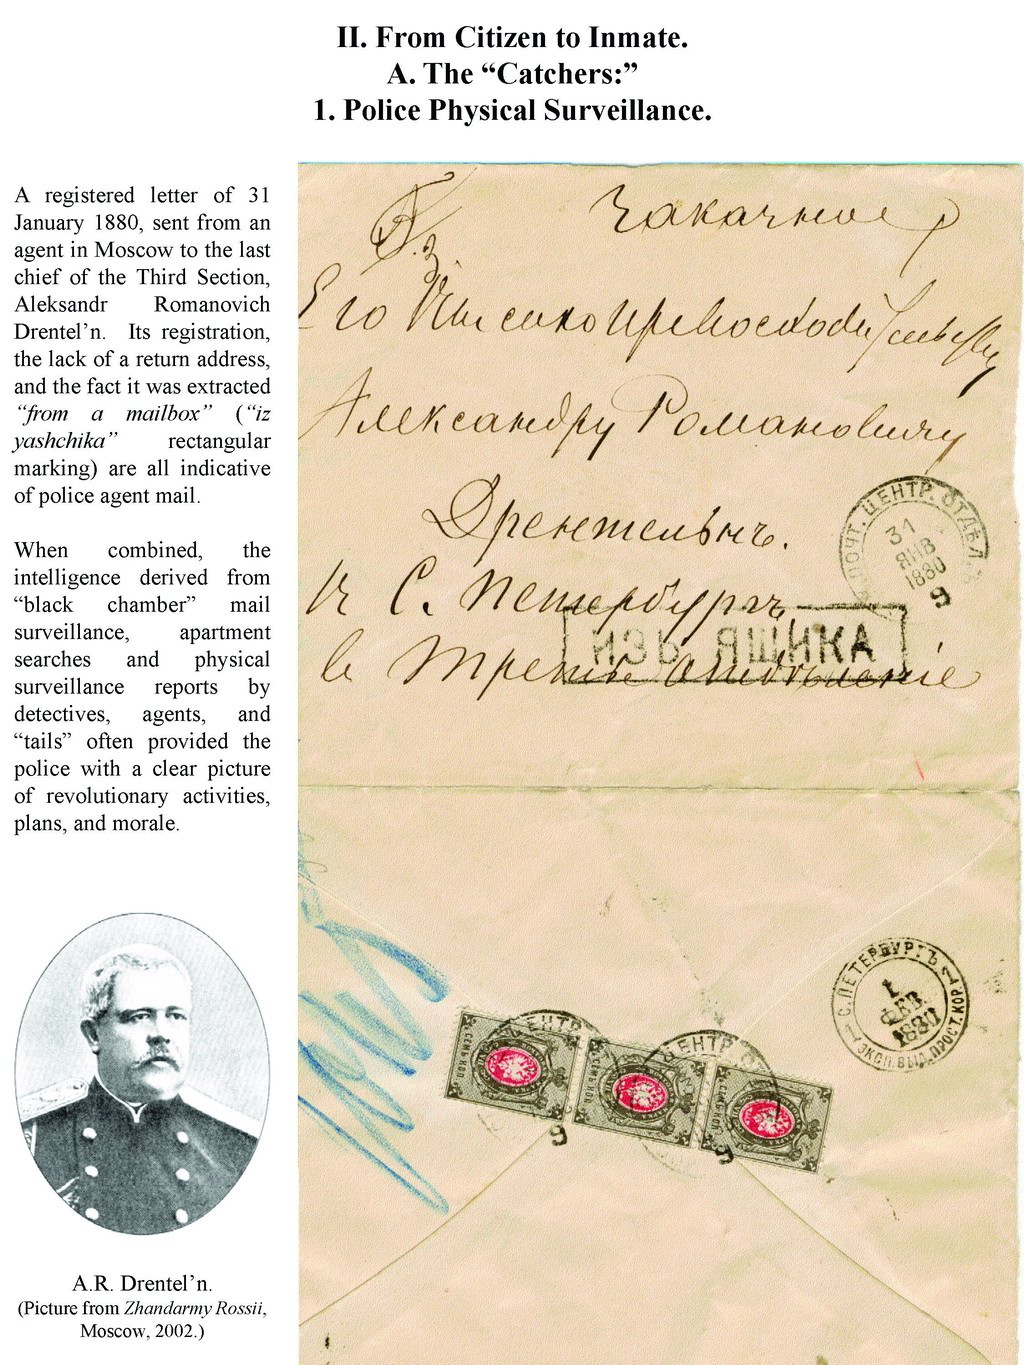 II. From Citizen to Inmate.
A. The “Catchers:”
1. Police Physical Surveillance.
A registered letter of 31
January 1880, sent from an
agent in Moscow to the last
chief of the Third Section,
Aleksandr Romanovich
Drentel’n. Its registration,
the lack of a return address,
and the fact it was extracted
“from a mailbox” (“iz
yashchika” rectangular
marking) are all indicative
of police agent mail.
When combined, the
intelligence derived from
“black chamber” mail
surveillance, apartment
searches and physical
surveillance reports by
detectives, agents, and
“tails” often provided the
police with a clear picture
of revolutionary activities,
plans, and morale.
A.R. Drentel’n.
(Picture from Zhandarmy Rossii,
Moscow, 2002.)
Закачное
Его Высокопревосходительству
Александру Романовичу
Дрентельнъ.
въ С. Петербургъ
въ Третье отдѣленіе
ПОЧТ. ЦЕНТР. ОТДѢЛ.
31
ЯНВ
1880
9
ИЗЪ ЯЩИКА
С. ПЕТЕРБУРГЪ
1
ФЕВ.
1880
ЭКСП. ВЫД. ПРОСТ. КОРР
ЦЕНТР
9
ЦЕНТР. О
9
СЕМЬ КОП
СЕМЬ КОП
СЕМЬ КОП